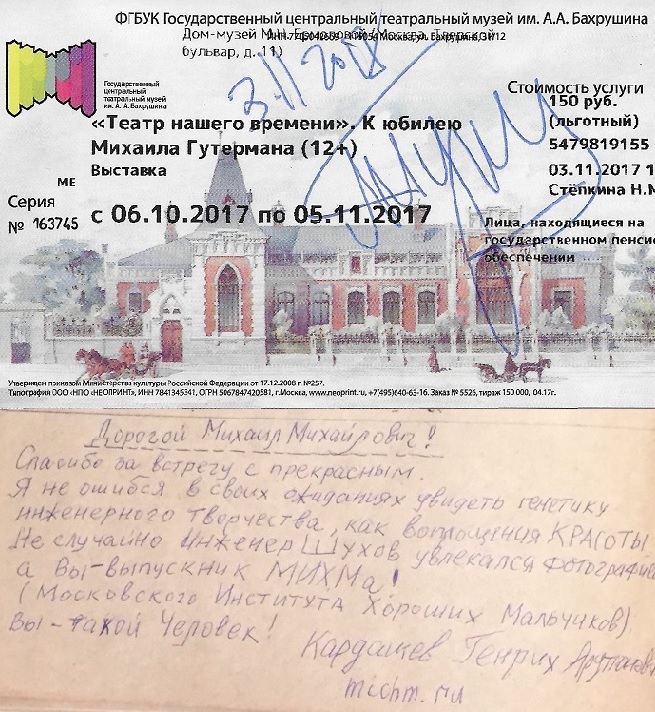 ФГБУК Государственный центральный театральный музей им. А.А. Бахрушина
Дом-музей М.Н. Ермоловой (Москва, Тверской
бульвар, д. 11)
Государственный
центральный
театральный музей
им. А.А. Бахрушина
3.11 2018
Стоимость услуги
150 руб.
(льготный)
5479819155
03.11.2017 1
Стёпкина Н.М
«Театр нашего времени». К юбилею
Михаила Гутермана (12+)
Выставка
МЕ
Серия
№ 163745
с 06.10.2017 по 05.11.2017
Лица, находящиеся на
государственном пенсио
обеспечении
Утвержден приказом Министерства культуры Российской Федерации от 17.12.2008 г №257.
Типография ООО «НПО «НЕОПРИНТ», ИНН 7841345541, ОГРН 5067847420581, г.Москва, www.neoprint.ru, +7(495)640-63-16. Заказ № 5526, тираж 150 000, 04.17г.
Дорогой Михаил Михайлович!
Спасибо за встречу с прекрасным.
Я не ошибся в своих ожиданиях увидеть генетику
инженерного творчества, как воплощения КРАСОТЫ
Не случайно Инженер Шухов увлекался фотографие
а Вы-выпускник МИХМа!
(Московского Института Хороших Мальчиков)
Вы-такой Человек!
Кардашев Генрих
michm.ru